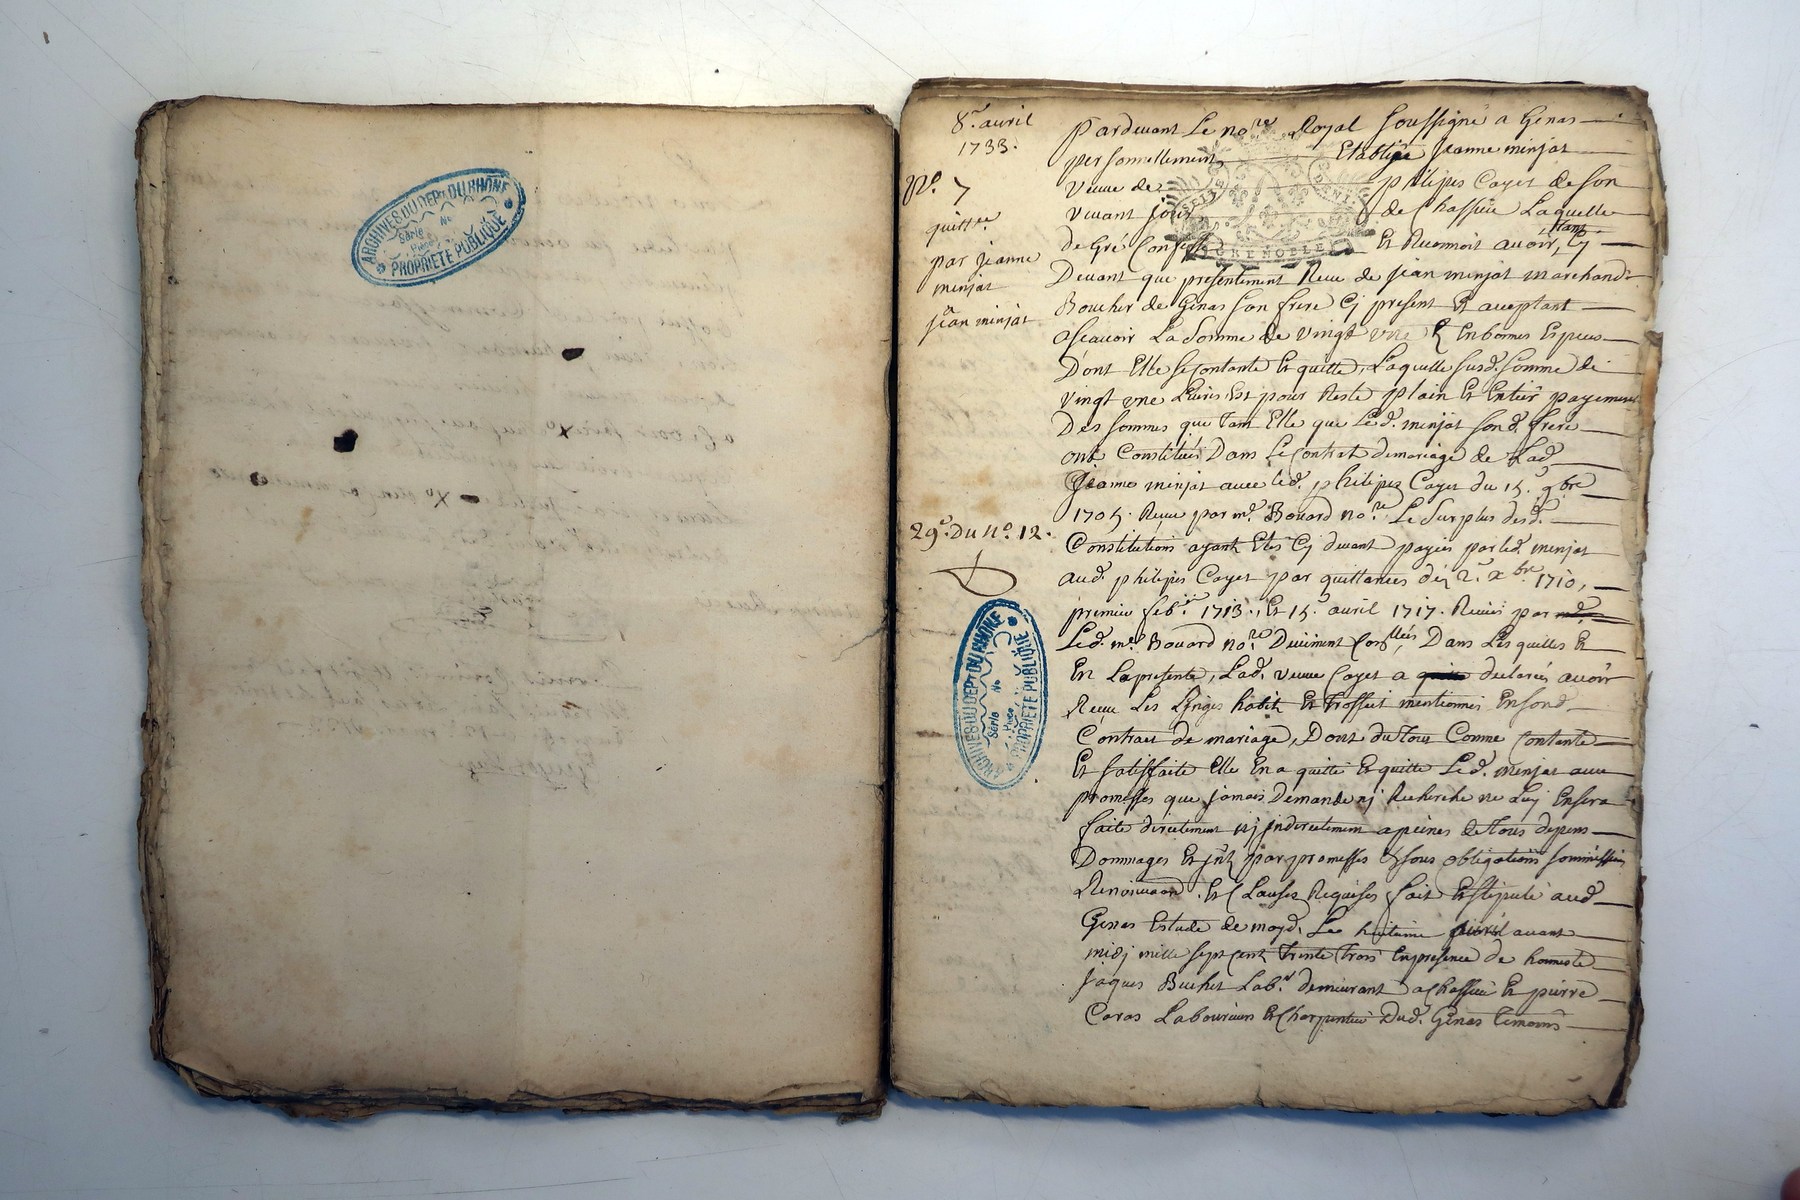 ARCHIVES DU DEPT DU RHÔNE
Série No
Pièce
PROPRIÉTÉ PUBLIQUE
8e. avril
1733.
No. 7
quittce
par jeanne
minjat
jean minjat
29e. Du No. 12.
ARCHIVES DU DEPT DU RHÔNE
Série No
Pièce
PROPRIÉTÉ PUBLIQUE
GRENOBLE
pardevant Le nore Royal soussigné a Genas
personnellement Etablye jeanne minjat
veuve de philipes Cayet de son
vivant de Chassieu Laquelle
de Gré Confesse Et Reconnoit avoir, tant Cy
Devant que presentement Receu de jean minjat marchand
Boucher de Genas son frere Cy present Et aceptant
ascavoir La somme de vingt vne £ En bonnes Especes
Dont Elle se contante Et quitte, Laquelle susd. somme de
vingt vne Livres Est pour Reste plain Et Entier payement
Des sommes que tant Elle que Led. minjat sond. frere
ont Constitués Dans Le contrat de mariage de Lad.
jeanne minjat avec led. philipes Cayet du 15e. 9bre
1705. Receu par me. Bouard nore. Le surplus desd.
Constitutions ayant Etés Cy devant payées par led. minjat
aud. philipes Cayet par quittances des 2e. xbre. 1710,
premier febr. 1713., Et 15e. avril 1717. Receues par
Led. me. Bouard nore. Deuement Conllées, Dans Lesquelles Et
En La presente, Lad. veuve Cayet a declarée avoir
Receue Les Linges habits Et Trossets mentionnés En sond.
Contrat de mariage, Dont du Tout Comme Contante
Et satisfaite Elle En a quitté Et quitte Led. minjat avec
promesses que jamais Demande ny Recherche ne Luy En sera
faite directement ny jndirectement a peines de Tous depens
Dommages Et jnts par promesses Et sous obligations soumissions
Renonciaons. Et Clauses Requises fait Et stipulé aud.
Genas Estude de moyd. Le huitieme avril avant
midy mille sept cent Trente Trois En presence de honneste
jaques Buchet Labr. demeurant a Chassieu Et pierre
Caras Laboureur Et Charpentier Dud. Genas Temoins